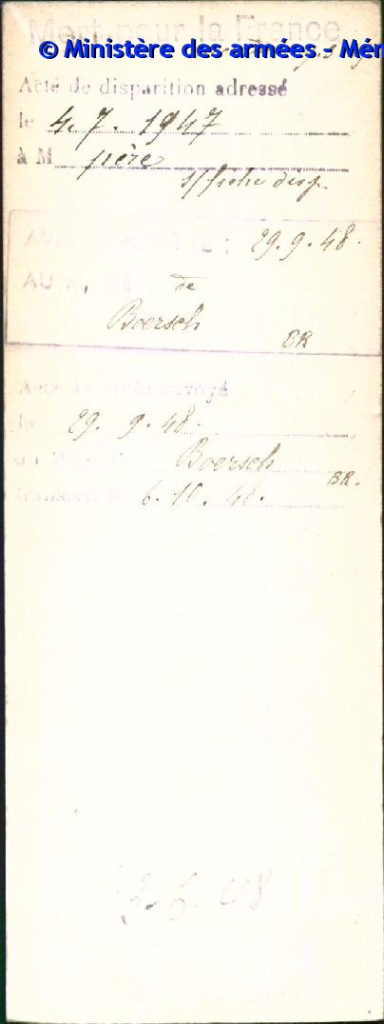 Mort pour la France
© Ministère des armées - Mém
Acte de disparition adressé
le 4. 7. 1947
à M père
s/ fiche disp.
AVIS 29.9.48.
AU de
Boersch
BR
Acte de décès envoyé
le 29. 9. 48.
Boersch
BR.
6. 10. 48.
3-6-48